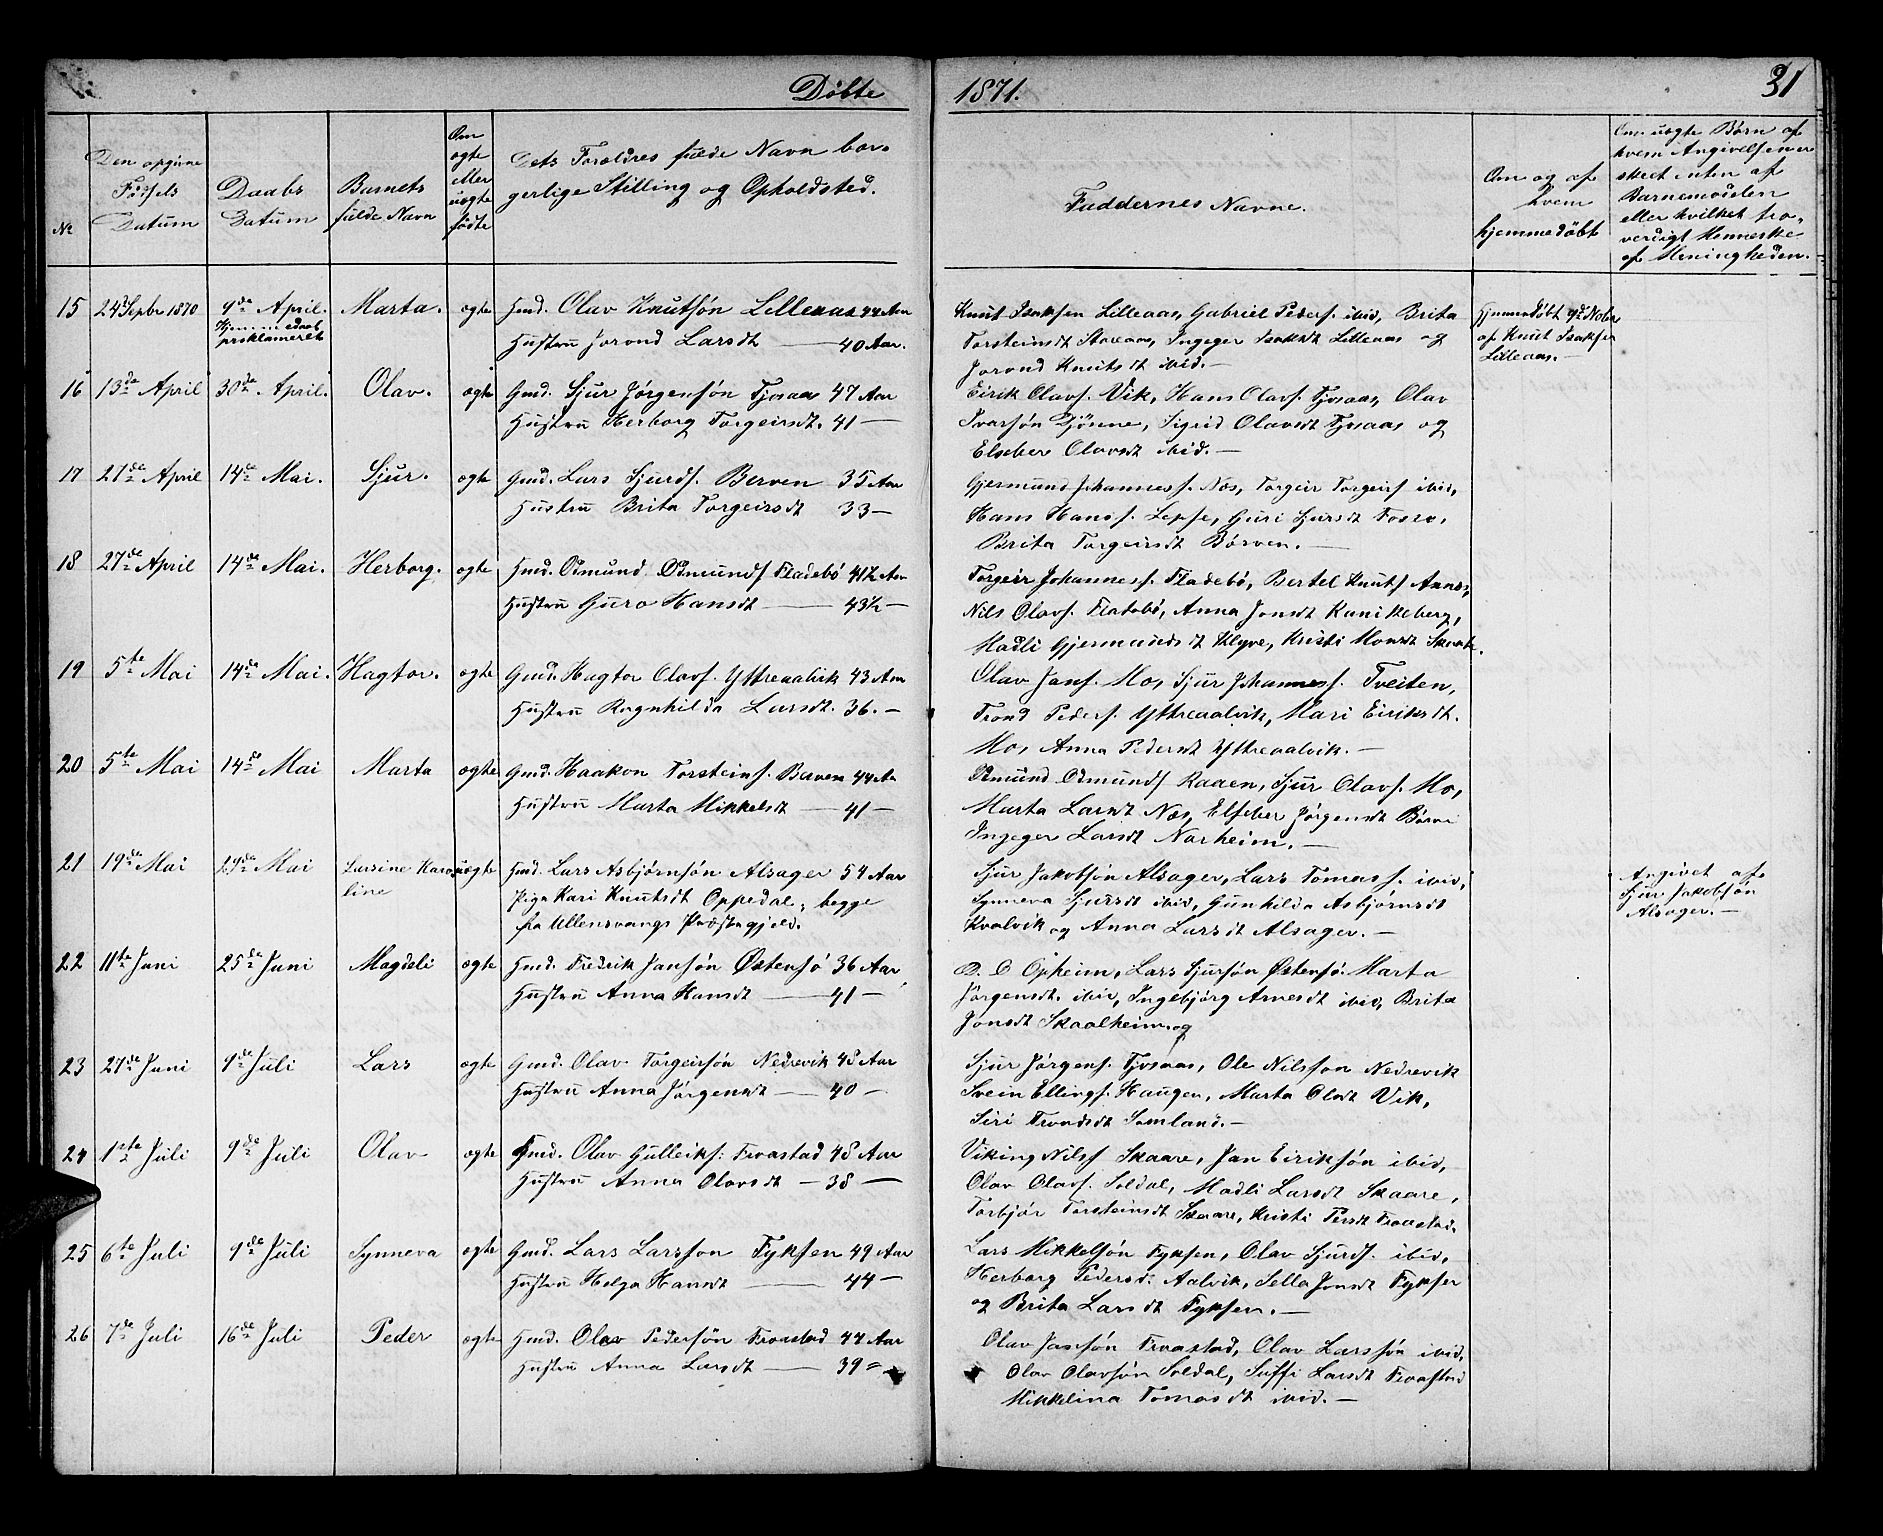 Døbte
1871.
31
No
Den opgivne Fødsels Datum
Daabs Datum
Barnets fulde Navn
Om ægte eller uægte fødte
Dets Forældres fulde Navn bor-
gerlige Stilling og Opholdsted.
Faddernes Navne.
Om og af hvem hjemmedøbt
Om uægte Børn af hvem Angivelsen er skeet enten af Barnemoderen eller hvilket tro-værdigt Menneske af Menigheden.
15 24 Septbr 1870 9de April. Marta. ægte Gmd. Olav Knutsøn Lilleaas 44 Aar
proklameret
Hustru Jorond Larsdt — 40 Aar.
Knut Isaksen Lilleaas, Gabriel Peders. ibid, Brita
Torsteinsdt Storaas, Ingeger Isaksdt Lilleaas og
Jorond Knutsdt ibid. —
Hjemmedøbt 9de Nobr
af Knut Isaksen
Lilleaas. —
16 13de April 30de April. Olav. ægte Gmd. Sjur Jørgensøn Tjosaas 47 Aar
Hustru Herborg Torgeirsdt. 41 —
Eirik Olavs. Vik, Hans Olavs. Tjosaas, Olav
Ivarsøn Djønne, Sigrid Olavsdt Tjosaas og
Elseber Olavsdt ibid. —
17 27de April 14de Mai. Sjur. ægte Gmd. Lars Sjurds. Berven 35 Aar
Hustru Brita Torgeirsdt 33 —
Gjermund Johanness. Næs, Torgeir Torgeirs ibid,
Hans Hanss. Lepse, Guri Sjursdt Fosse,
Brita Torgeirsdt Børven. —
18 27de April 14de Mai. Herborg. ægte Gmd. Odmund Odmunds Fladebø 41½ Aar
Hustru Guro Hansdt — 43½ —
Torgeir Johanness. Fladebø, Bertel Knuts Annes,
Nils Olavs. Fladebø, Anna Jonsdt Kanikeberg,
Madli Gjermundsdt Klyve, Kristi Monsdt
19 5te Mai 14de Mai. Hagtor. ægte Gmd. Hagtor Olavs. Yttreaalvik 43 Aar
Hustru Ragnhilda Larsdt. 36. —
Olav Jans. Mo, Sjur Johanness. Tveiten,
Trond Peders. Yttreaalvik, Mari Eiriksdt.
Mo, Anna Pedersdt Yttreaalvik. —
20 5te Mai 14de Mai Marta ægte Gmd. Haakon Torsteins. Berven 44 Aa
Hustru Marta Mikkelsdt — 41 —
Odmund Odmunds Raaen, Sjur Olavs. Mo,
Marta Larsdt Næs, Elseber Jørgensdt Børve
Ingeger Larsdt Norheim. —
21 19de Mai 29de Mai Larsine Karo- uægte Gmd. Lars Asbjørnsøn Alsager 54 Aar
line
Pige Kari Knutsdt Oppedal, begge
fra Ullensvangs Præstegjeld.
Sjur Jakobsøn Alsager, Lars Tomass. ibid,
Synneva Sjursdt ibid, Gunhilda Asbjørnsdt
Kvalvik og Anna Larsdt Alsager. —
Angivet af
Sjur Jakobsøn
Alsager. —
22 11te Juni 25de Juni Magdeli ægte Gmd. Fredrik Jansøn Østensø 36 Aar
Hustru Anna Hansdt — 41 —
D. O Opheim, Lars Sjursøn Østensø. Marta
Jørgensdt. ibid, Ingebjørg Arnesdt ibid, Brita
Jonsdt Skaalheim og
23 27de Juni 9de Juli Lars ægte Gmd. Olav Torgeirsøn Nedrevik 48 Aar
Hustru Anna Jørgensdt — 40 —
Sjur Jørgens. Tjosaas, Ole Nilsson Nedrevik
Svein Ellings. Haugen, Marta Olsdt Vik,
Siri Trondsdt Samland. —
24 1ste Juli 9de Juli Olav ægte Gmd. Olav Gulleiks: Froastad 48 Aar
Hustru Anna Olavsdt — 38 —
Viking Nilss Skaare, Jan Eiriksøn ibid,
Olav Olavs. Soldal, Madli Larsdt Skaare,
Torbjør Torsteinsdt Skaare, Kristi Persdt Froastad.
25 6te Juli 9de Juli Synneva ægte Gmd. Lars Larsson Fyksen 49 Aar
Hustru Helga Hansdt — 44 —
Lars Mikkelsøn Fyksen, Olav Sjurds. ibid,
Herborg Pedersdt. Aalvik, Sella Jonsdt Fyksen
og Brita Larsdt Fyksen. —
26 7de Juli 16de Juli Peder ægte Gmd. Olav Pedersøn Froastad 44 Aar
Hustru Anna Larsdt — 39 =
Olav Jansøn Froastad, Olav Larssøn ibid,
Olav Olavsøn Soldal, Siffi Larsdt Froastad
Mikkelina Tomasdt ibid. —